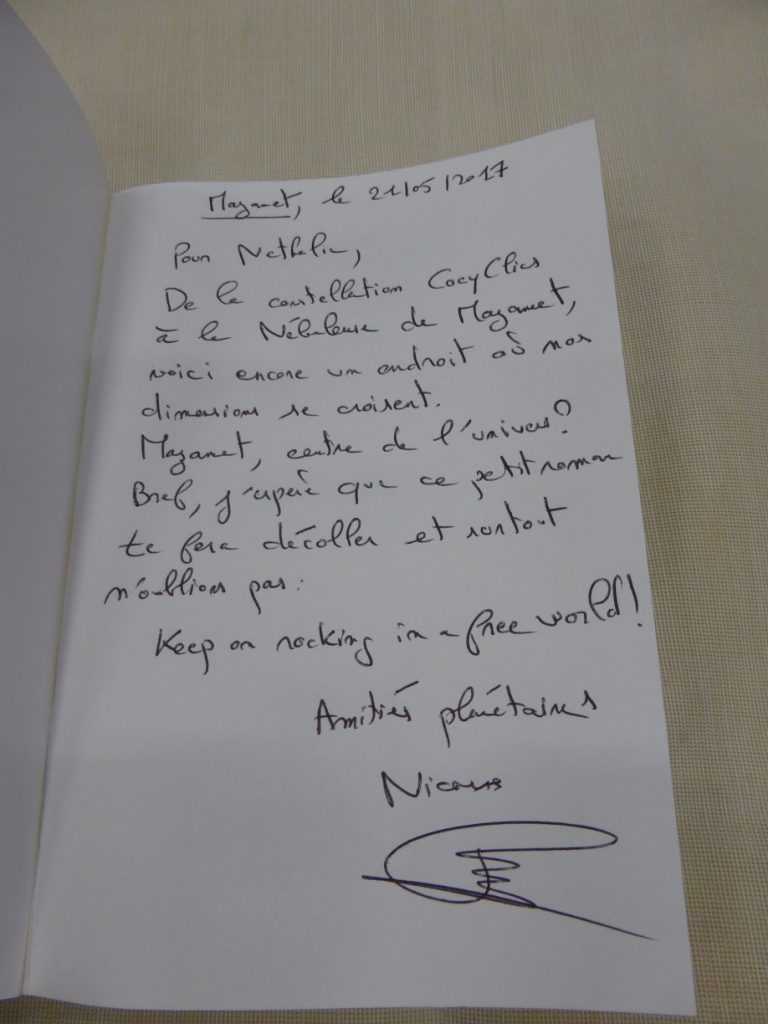 Mazamet, le 21/05/2017
Pour Nathalie,
De la constellation CocyClics
à la Nébuleuse de Mazamet,
voici encore un endroit où nos
dimensions se croisent.
Mazamet, centre de l'univers?
Bref, j'espère que ce petit roman
te fera décoller et surtout
n'oublions pas:
Keep on rocking in a free world!
Amitiés planétaires
Nicolas